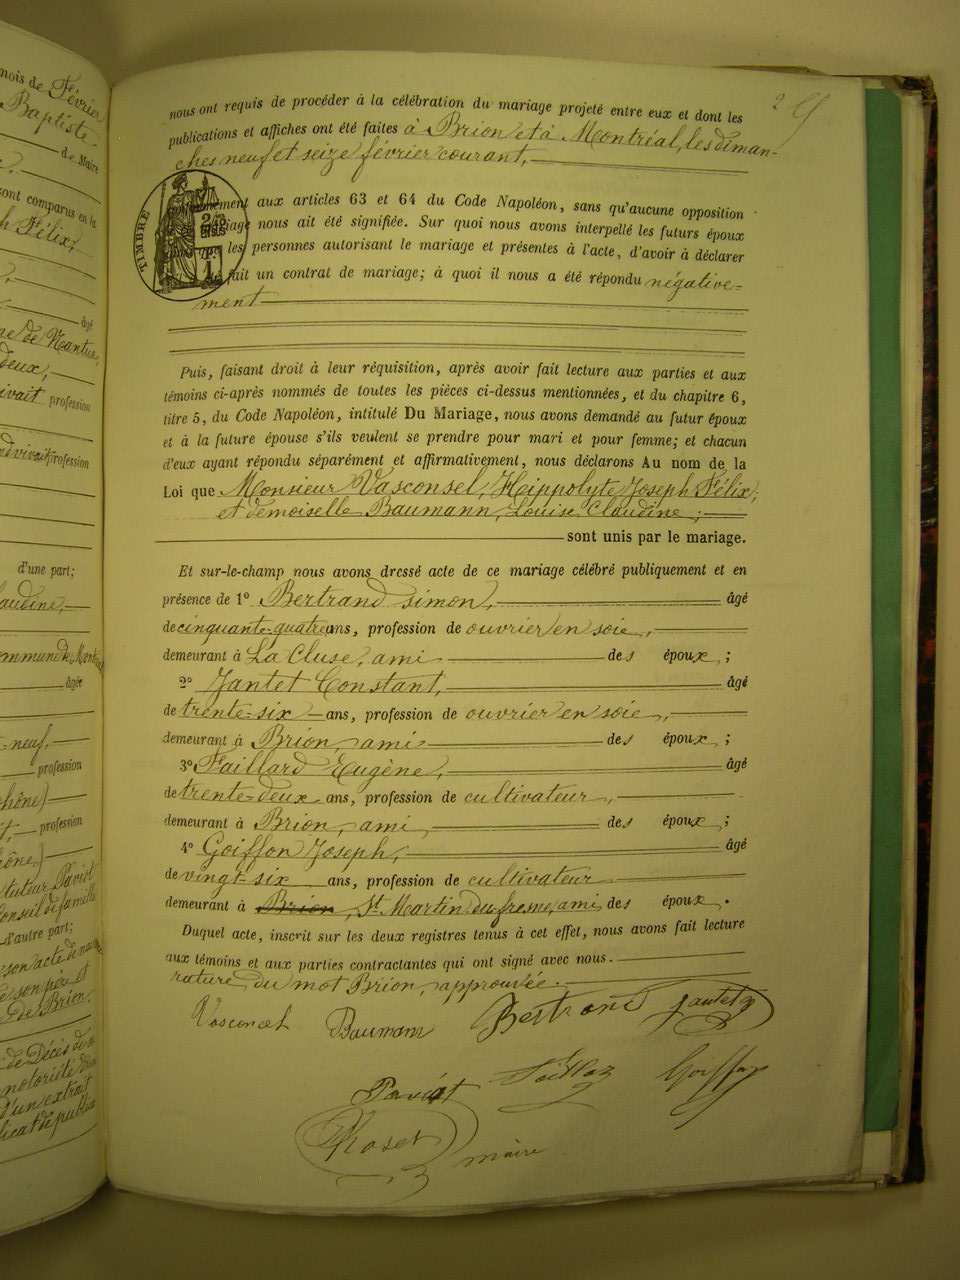 mois de Février
Baptiste
de Maire
sont comparus en la
h Félix,
âgé
ne de Nantua,
deux,
vivait profession
profession
d'une part;
laudine,
commune de
âgée
-neuf,
profession
hône)
profession
hône,)
tuteur Paviot
Conseil de famille
d'autre part;
son acte de
son père et
de Brion,
de Décès de
notoriété
d'un extrait
icat de public
2
nous ont requis de procéder à la célébration du mariage projeté entre eux et dont les
publications et affiches ont été faites à Brion et à Montréal, les diman-
ches neuf et seize février courant,
aux articles 63 et 64 du Code Napoléon, sans qu'aucune opposition
mariage nous ait été signifiée. Sur quoi nous avons interpellé les futurs époux
les personnes autorisant le mariage et présentes à l'acte, d'avoir à déclarer
fait un contrat de mariage; à quoi il nous a été répondu négative=
ment
TIMBRE
Puis, faisant droit à leur réquisition, après avoir fait lecture aux parties et aux
témoins ci-après nommés de toutes les pièces ci-dessus mentionnées, et du chapitre 6,
titre 5, du Code Napoléon, intitulé Du Mariage, nous avons demandé au futur époux
et à la future épouse s'ils veulent se prendre pour mari et pour femme; et chacun
d'eux ayant répondu séparément et affirmativement, nous déclarons Au nom de la
Loi que Monsieur Vasconsel, Hippolyte Joseph Félix,
et demoiselle Baumann, Louise Claudine;
sont unis par le mariage.
Et sur-le-champ nous avons dressé acte de ce mariage célébré publiquement et en
présence de 1° Bertrand Simon, âgé
de cinquante-quatre ans, profession de ouvrier en soie,
demeurant à La Cluse, ami des époux;
2° Jantet Constant, âgé
de trente-six ans, profession de ouvrier en soie,
demeurant à Brion, ami des époux;
3° Faillard Eugène, âgé
de trente-deux ans, profession de cultivateur,
demeurant à Brion, ami des époux;
4° Goiffon Joseph, âgé
de vingt-six ans, profession de cultivateur
demeurant à Brion, St Martin du fresne, ami des époux.
Duquel acte, inscrit sur les deux registres tenus à cet effet, nous avons fait lecture
aux témoins et aux parties contractantes qui ont signé avec nous.
rature du mot Brion, approuvée.
Vasconsel Baumann Bertrand Jantet
Paviot Goiffon
Roset maire